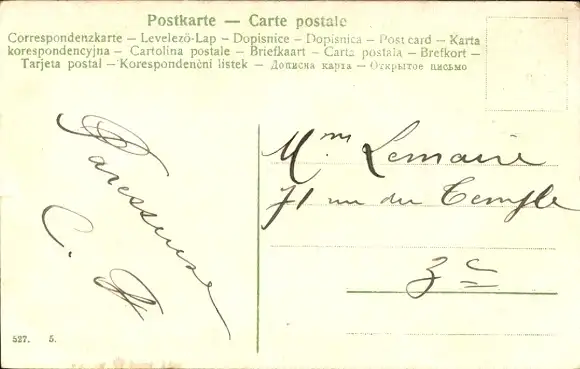 Postkarte — Carte postale
Correspondenzkarte – Levelező-Lap – Dopisnice – Dopisnica – Post card – Karta
korespondencyjna – Cartolina postale – Briefkaart – Carta postala – Brefkort –
Tarjeta postal – Korespondenční lístek – Дописна карта – Открытое письмо
Paresseuse
C. F.
Mme Lemaire
71 rue du Temple
3e
527. 5.